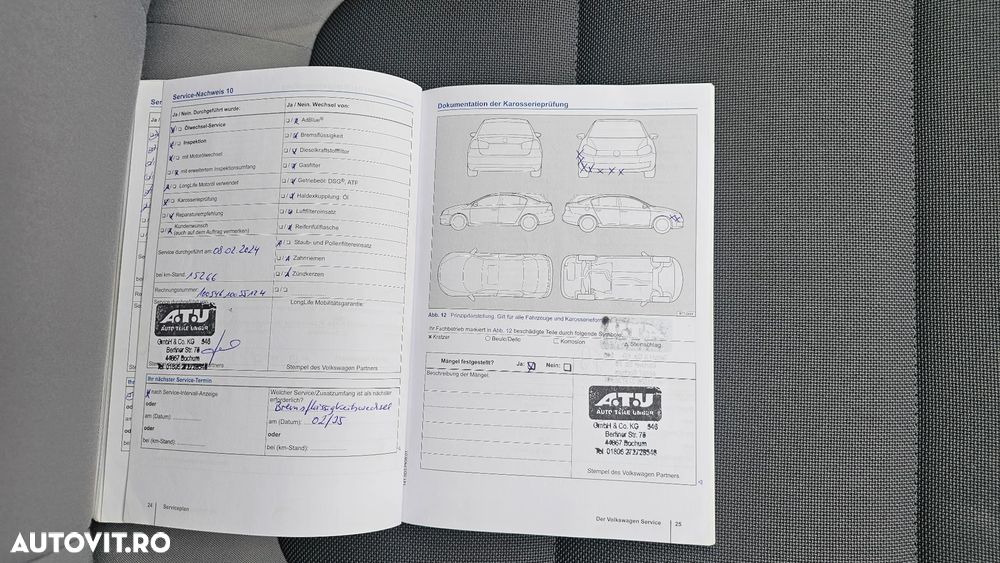 Service-Nachweis 10
Ja / Nein. Durchgeführt wurde:
Ölwechsel-Service
Inspektion
mit Motorölwechsel
mit erweitertem Inspektionsumfang
LongLife Motoröl verwendet
Karosserieprüfung
Reparaturempfehlung
Kundenwunsch
(auch auf dem Auftrag vermerken)
Service durchgeführt am: 08.02.2024
bei km-Stand: 15266
Rechnungsnummer:
Service durchgeführt
A.T.U
AUTO TEILE UNGER
GmbH & Co. KG 546
Berliner Str. 78
44867 Bochum
Ja / Nein. Wechsel von:
AdBlue®
Bremsflüssigkeit
Dieselkraftstofffilter
Gasfilter
Getriebeöl: DSG®, ATF
Haldexkupplung: Öl
Luftfiltereinsatz
Reifenfüllflasche
Staub- und Pollenfiltereinsatz
Zahnriemen
Zündkerzen
LongLife Mobilitätsgarantie:
Stempel des Volkswagen Partners
Ihr nächster Service-Termin
nach Service-Intervall-Anzeige
oder
am (Datum):
oder
bei (km-Stand):
Welcher Service/Zusatzumfang ist als nächster
erforderlich?
Bremsflüssigkeitswechsel
am (Datum): 02/25
oder
bei (km-Stand):
24 Serviceplan
Dokumentation der Karosserieprüfung
Abb. 12 Prinzipdarstellung: Gilt für alle Fahrzeuge und Karosserieformen
Ihr Fachbetrieb markiert in Abb. 12 beschädigte Teile durch folgende Symbole:
× Kratzer
Beule/Delle
Korrosion
Steinschlag
Mängel festgestellt? Ja: Nein:
Beschreibung der Mängel:
A.T.U
AUTO TEILE UNGER
GmbH & Co. KG 546
Berliner Str. 78
44867 Bochum
Stempel des Volkswagen Partners
Der Volkswagen Service 25
AUTOVIT.RO